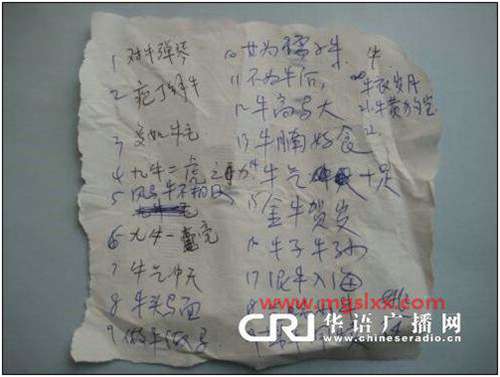 1 对牛弹琴
2 庖丁解牛
3 多如牛毛
4 九牛二虎之力
5 风马牛不相及
6 九牛一毫
7 牛气冲天
8 牛头马面
9 做牛做马
10 甘为孺子牛
11 不为牛后,
12 牛高马大
13 牛腩好食
14 牛气 十足
15 金牛贺岁
16 牛子牛孙
17 泥牛入海
18
牛
牛衣岁月
21 牛黄
22
www.mgslxx.com
CRI 华语广播网
www.chineseradio.cn